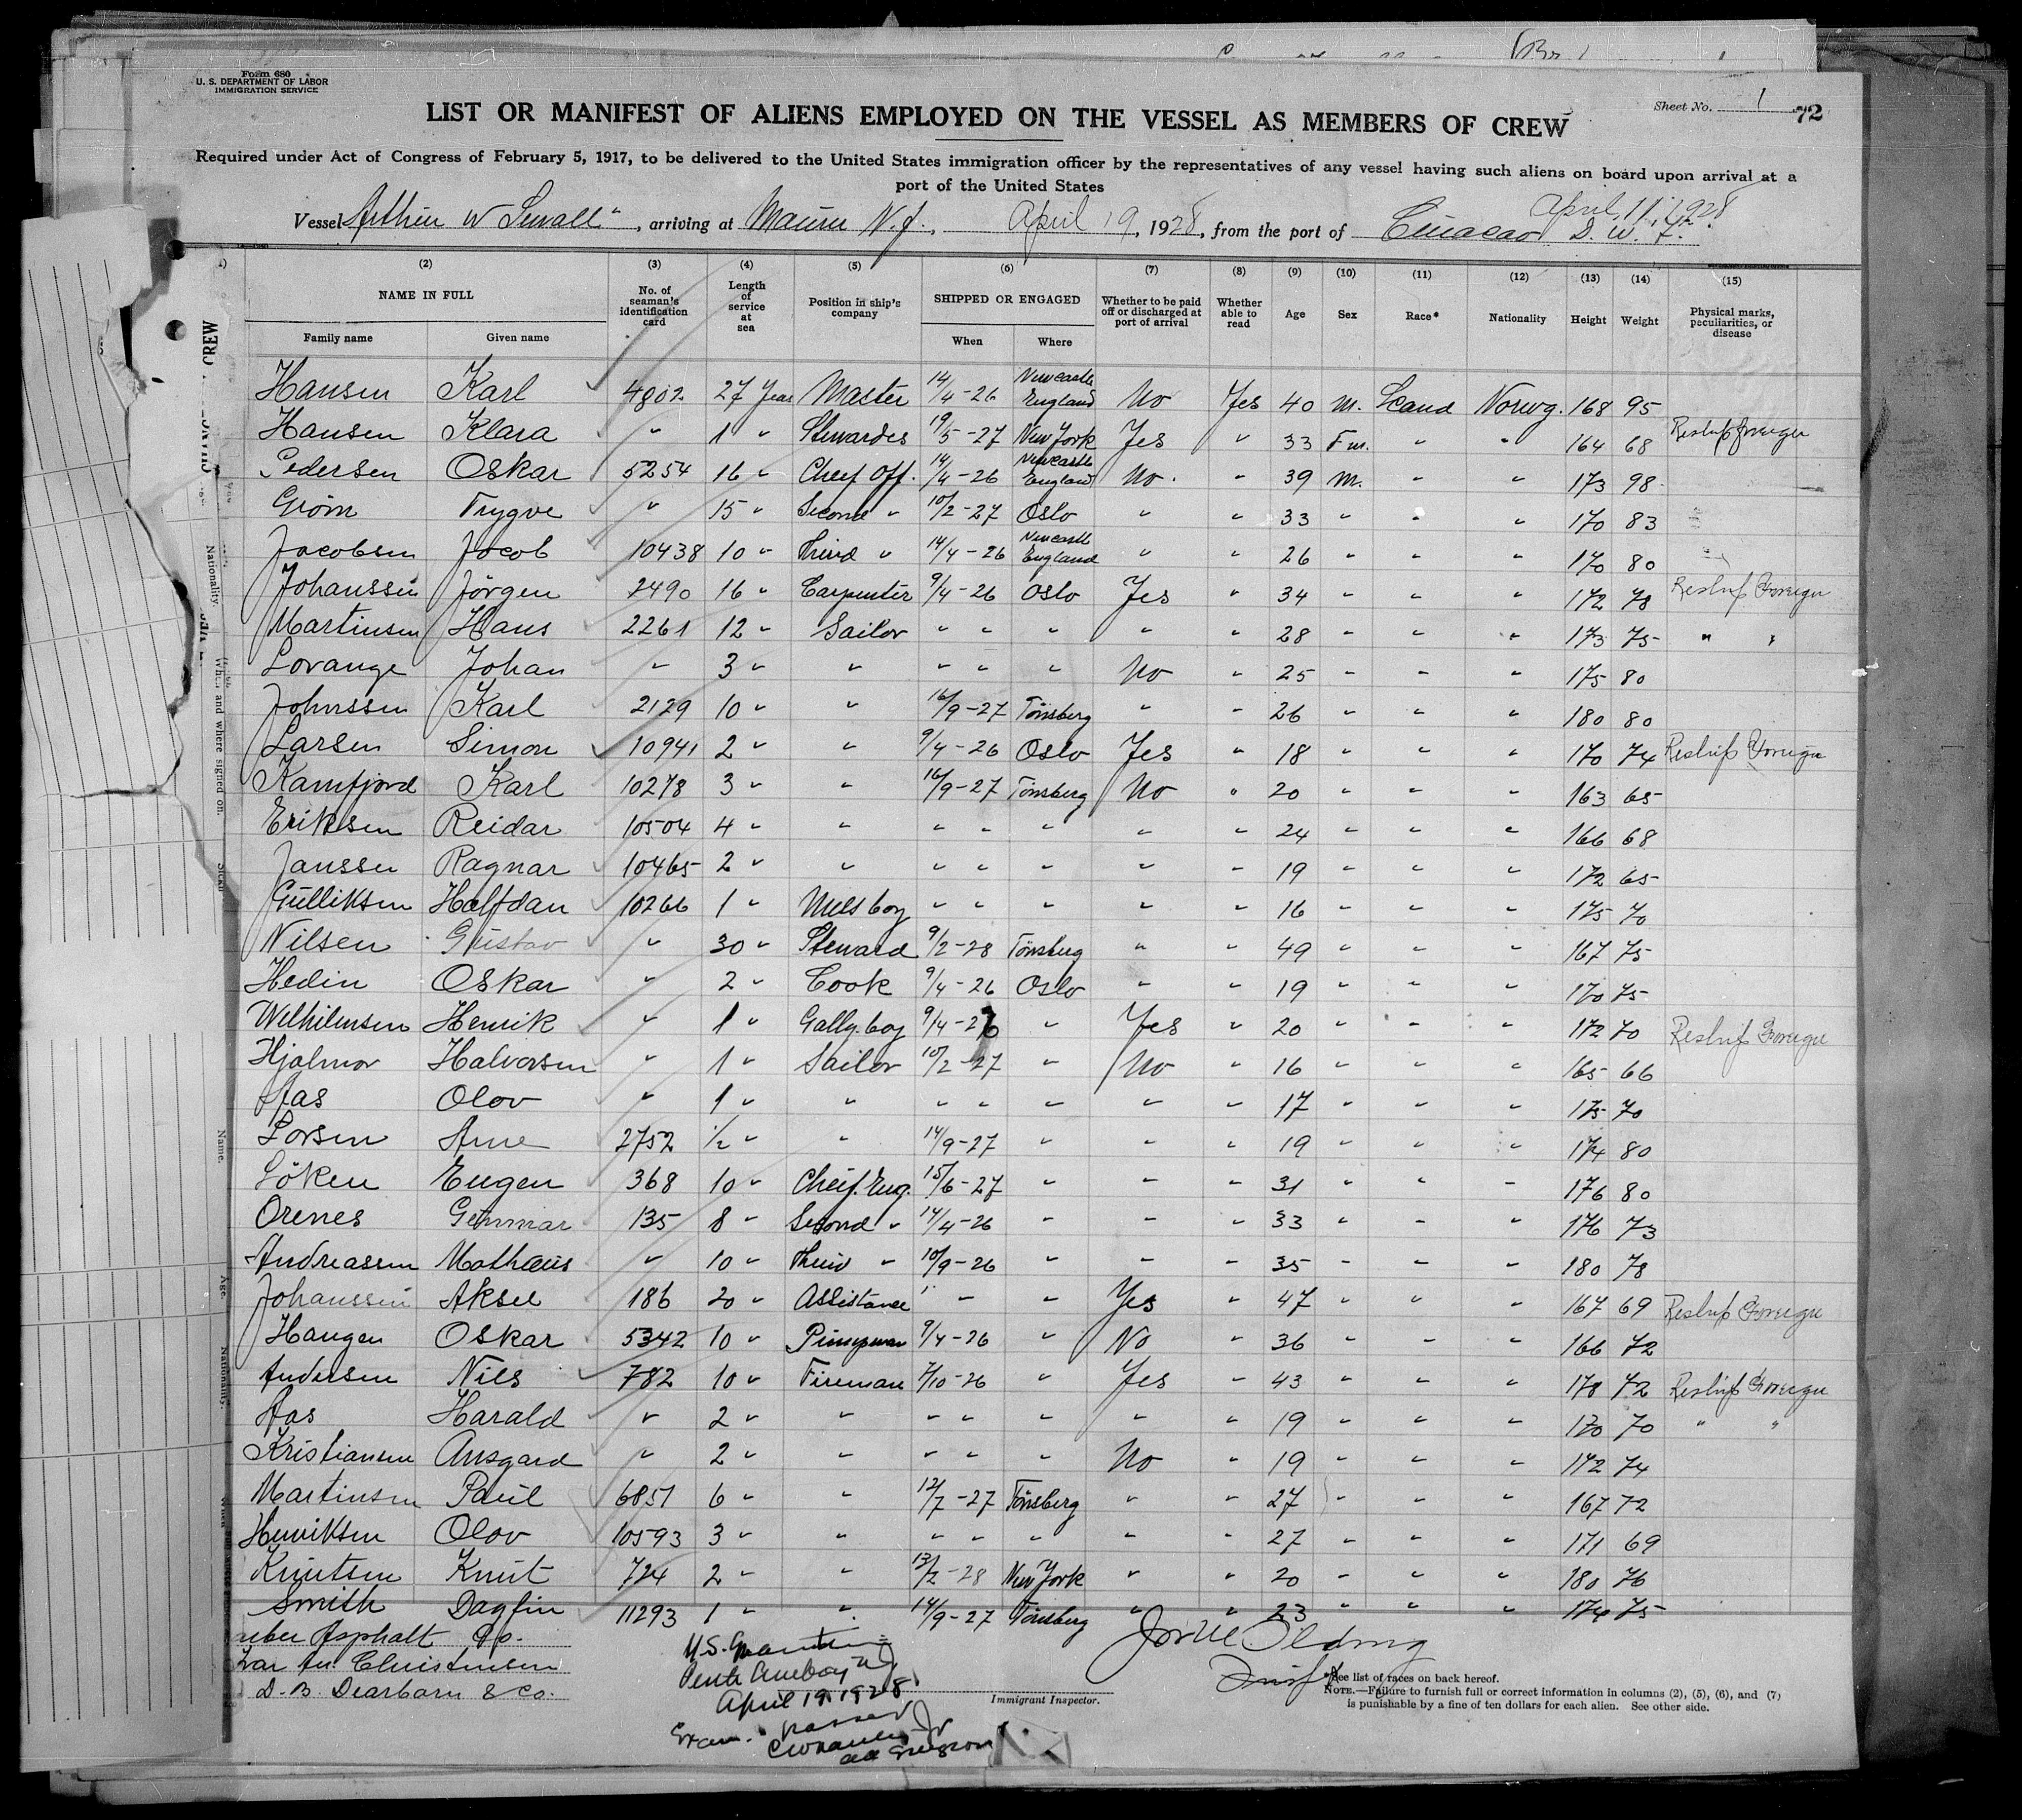 Form 680
U. S. DEPARTMENT OF LABOR
IMMIGRATION SERVICE
Sheet No. 1
72
LIST OR MANIFEST OF ALIENS EMPLOYED ON THE VESSEL AS MEMBERS OF CREW
Required under Act of Congress of February 5, 1917, to be delivered to the United States immigration officer by the representatives of any vessel having such aliens on board upon arrival at a
port of the United States
April 11, 1928
Vessel Arthur W Sewall", arriving at Maurer N.J., April 19, 1928, from the port of Curacao D. W. I.
(2) (3) (4) (5) (6) (7) (8) (9) (10) (11) (12) (13) (14) (15)
NAME IN FULL No. of seaman's identification card Length of service at sea Position in ship's company SHIPPED OR ENGAGED Whether to be paid off or discharged at port of arrival Whether able to read Age Sex Race* Nationality Height Weight Physical marks, peculiarities, or disease
Family name Given name When Where
Hansen Karl 4802 27 Year Master 14/4-26 Newcastle England No Yes 40 m. Scand Norwg. 168 95
Hansen Klara " 1 " Stewardes 19/5-27 New York Yes " 33 Fm. " " 164 68
Pedersen Oskar 5254 16 " Cheef Off. 14/4-26 Newcastle England No. " 39 m. " " 173 98
Gröm Trygve " 15 " Second " 10/2-27 Oslo " " 33 " " " 170 83
Jacobsen Jacob 10438 10 " Third " 14/4-26 Newcastle England " " 26 " " " 170 80
Johanssen Jörgen 2490 16 " Carpenter 9/4-26 Oslo Yes " 34 " " " 172 78
Martinsen Hans 2261 12 " Sailor " " " " " 28 " " " 173 75 " "
Lorange Johan " 3 " " " " " No " 25 " " " 175 80
Johnssen Karl 2129 10 " " 16/9-27 Tönsberg " " 26 " " " 180 80
Larsen Simon 10941 2 " " 9/4-26 Oslo Yes " 18 " " " 170 74
Kamfjord Karl 10278 3 " " 16/9-27 Tönsberg No " 20 " " " 163 65
Eriksen Reidar 10504 4 " " " " " " " 24 " " " 166 68
Janssen Ragnar 10465 2 " " " " " " " 19 " " " 172 65
Gulliksen Halfdan 10266 1 " Messboy " " " " " 16 " " " 175 70
Nilsen Gustav " 30 " Steward 9/2-28 Tönsberg " " 49 " " " 167 75
Hedin Oskar " 2 " Cook 9/4-26 Oslo " " 19 " " " 170 75
Welhilmsen Henrik " 1 " Gally boy 9/4-26 " Yes " 20 " " " 172 70
Hjalmar Halvorsen " 1 " Sailor 10/2-27 " No " 16 " " " 165 66
Aas Olov " 1 " " " " " " " 17 " " " 175 70
Lorsen Arne 2752 1/2 " " 14/9-27 " " " 19 " " " 174 80
Löken Eugen 368 10 " Cheif. Eng. 15/6-27 " " " 31 " " " 176 80
Orenes Gunnar 135 8 " Second " 14/4-26 " " " 33 " " " 176 73
Andreassen Mathæus " 10 " Third " 10/9-26 " " " 35 " " " 180 78
Johanssen Aksel 186 20 " Assistance " " " Yes " 47 " " " 167 69
Haugen Oskar 5342 10 " Pumpman 9/4-26 " No " 36 " " 166 72
Andersen Nils 782 10 " Fireman 7/10-26 " Yes " 43 " " " 178 72
Aas Harald " 2 " " " " " " " 19 " " " 170 70 " "
Kristiansen Ansgard " 2 " " " " " No " 19 " " " 172 74
Martinsen Paul 6851 6 " " 12/7-27 Tönsberg " " 27 " " " 167 72
Henriksen Olov 10593 3 " " " " " " " 27 " " " 171 69
Knutsen Knut 724 2 " " 13/2-28 New York " " 20 " " " 180 76
Smith Dagfin 11293 1 " " 14/9-27 Tönsberg " " 23 " " " 174 75
Asphalt Co.
Christensen
D. B. Dearborn & Co.
U.S.
Perth Amboy NJ
April 19, 1928
passed
Immigrant Inspector.
*See list of races on back hereof.
NOTE.—Failure to furnish full or correct information in columns (2), (5), (6), and (7)
is punishable by a fine of ten dollars for each alien. See other side.
CREW
Nationality
When and where signed on.
Name.
Age.
Nationality.